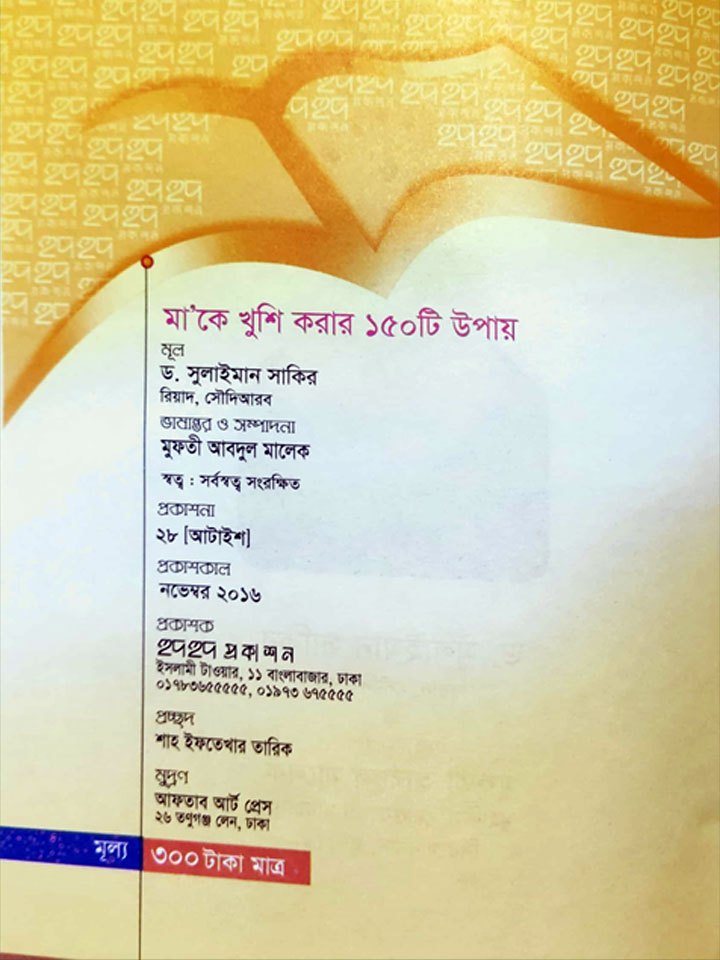 মা'কে খুশি করার ১৫০টি উপায়
মূল
ড. সুলাইমান সাকির
রিয়াদ, সৌদিআরব
ভাষান্তর ও সম্পাদনা
মুফতী আবদুল মালেক
স্বত্ব : সর্বস্বত্ব সংরক্ষিত
প্রকাশনা
২৮ [আটাইশ]
প্রকাশকাল
নভেম্বর ২০১৬
প্রকাশক
হুদহুদ প্রকাশন
ইসলামী টাওয়ার, ১১ বাংলাবাজার, ঢাকা
০১৭৮৩৬৫৫৫৫৫, ০১৯৭৩ ৬৭৫৫৫৫
প্রচ্ছদ
শাহ ইফতেখার তারিক
মুদ্রণ
আফতাব আর্ট প্রেস
২৬ তণুগঞ্জ লেন, ঢাকা
মূল্য ৩০০ টাকা মাত্র